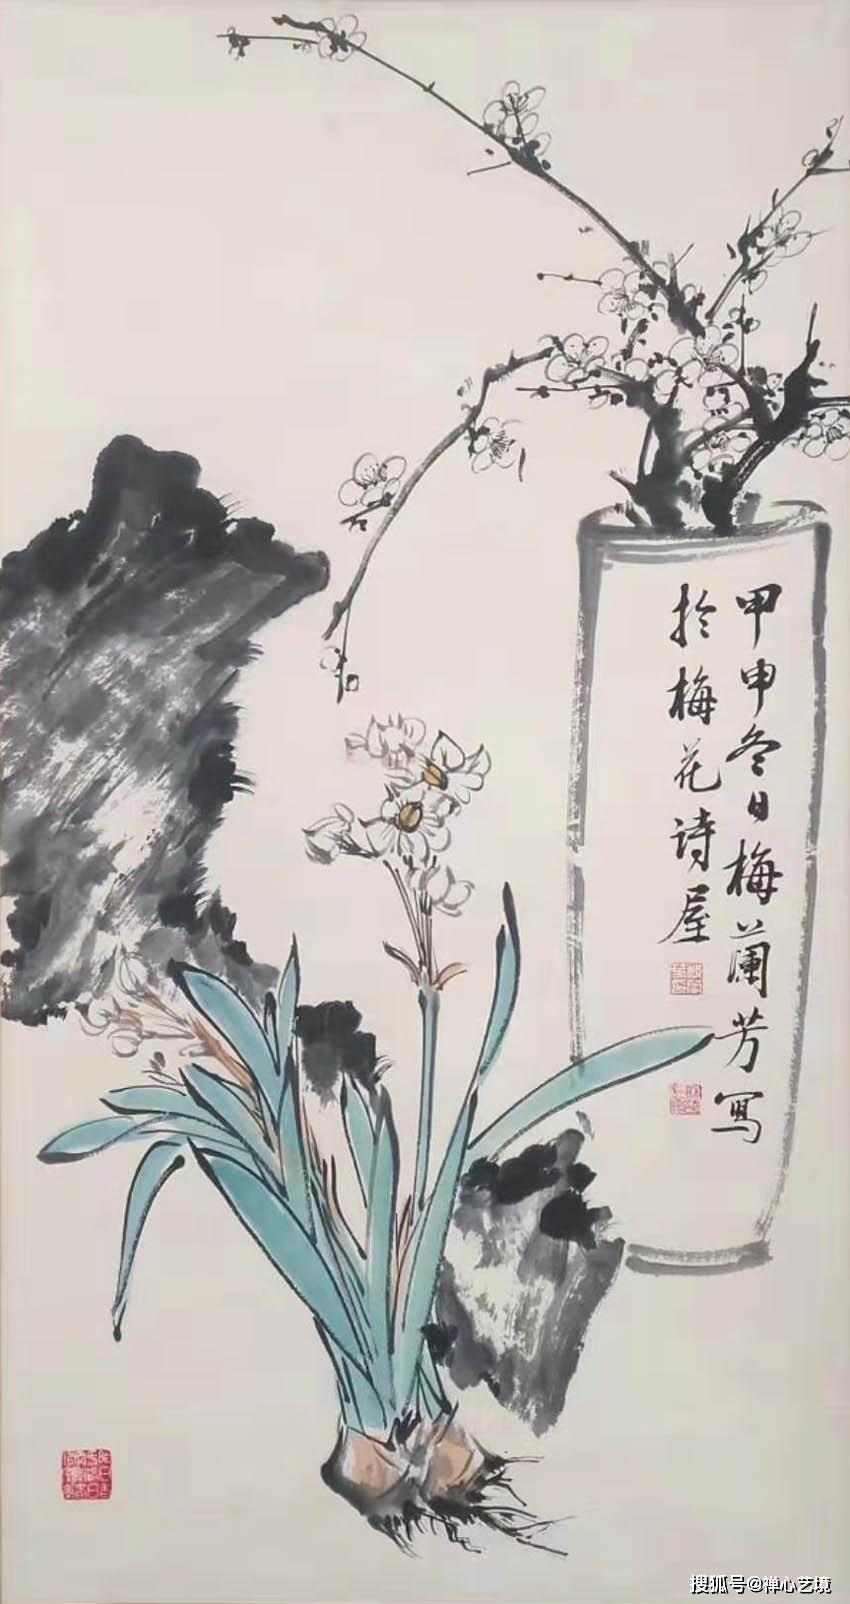 甲申冬日梅蘭芳写
於梅花诗屋
搜狐号@禅心艺境